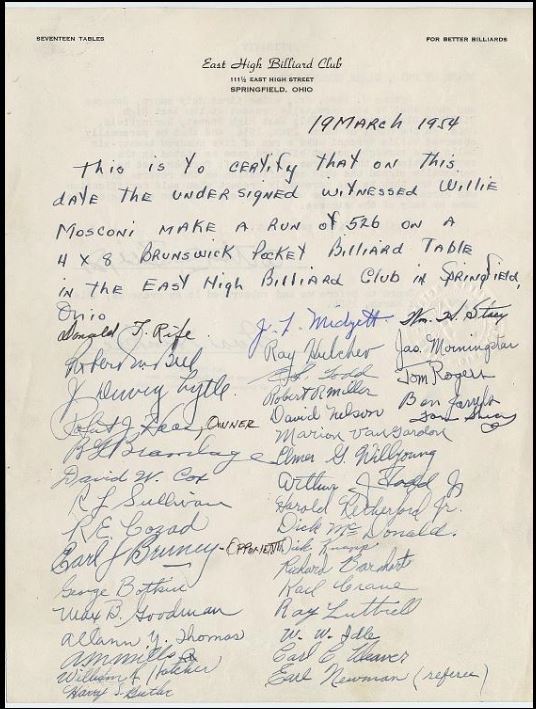 SEVENTEEN TABLES
FOR BETTER BILLIARDS
East High Billiard Club
111½ EAST HIGH STREET
SPRINGFIELD, OHIO
19 MARCH 1954
This is to CERTIFY THAT ON This
DATE THE UNDERSIGNED WITNESSED WILLIE
MOSCONI MAKE A RUN OF 526 ON A
4 X 8 BRUNSWICK POCKET BILLIARD TABLE
IN THE EAST HIGH BILLIARD CLUB IN SPRINGFIELD,
OHIO
Donald T. Rife
J. Dewey Lytle
Robert J. Haas, OWNER
David W. Cox
R L Sullivan
R. E. Cozad
Earl J Bruney - OPPONENT
George Botkin
Max B. Goodman
Allann Y. Thomas
A M Mills
William A Hatcher
Harry S. Butler
J. L. Midgett
Ray
Todd
Robert R. Miller
David Nelson
Marion Van Gordon
Elmer G. Willyoung
Arthur J Todd Jr
Harold Retherford Jr.
Dick McDonald.
Dick
Richard
Karl Crane
Ray Luttrell
W. W. Idle
Carl C Weaver
Earl Newman (referee)
Wm. H. Stacy
Jas. Morningstar
Tom Rogers
Ben
Tom